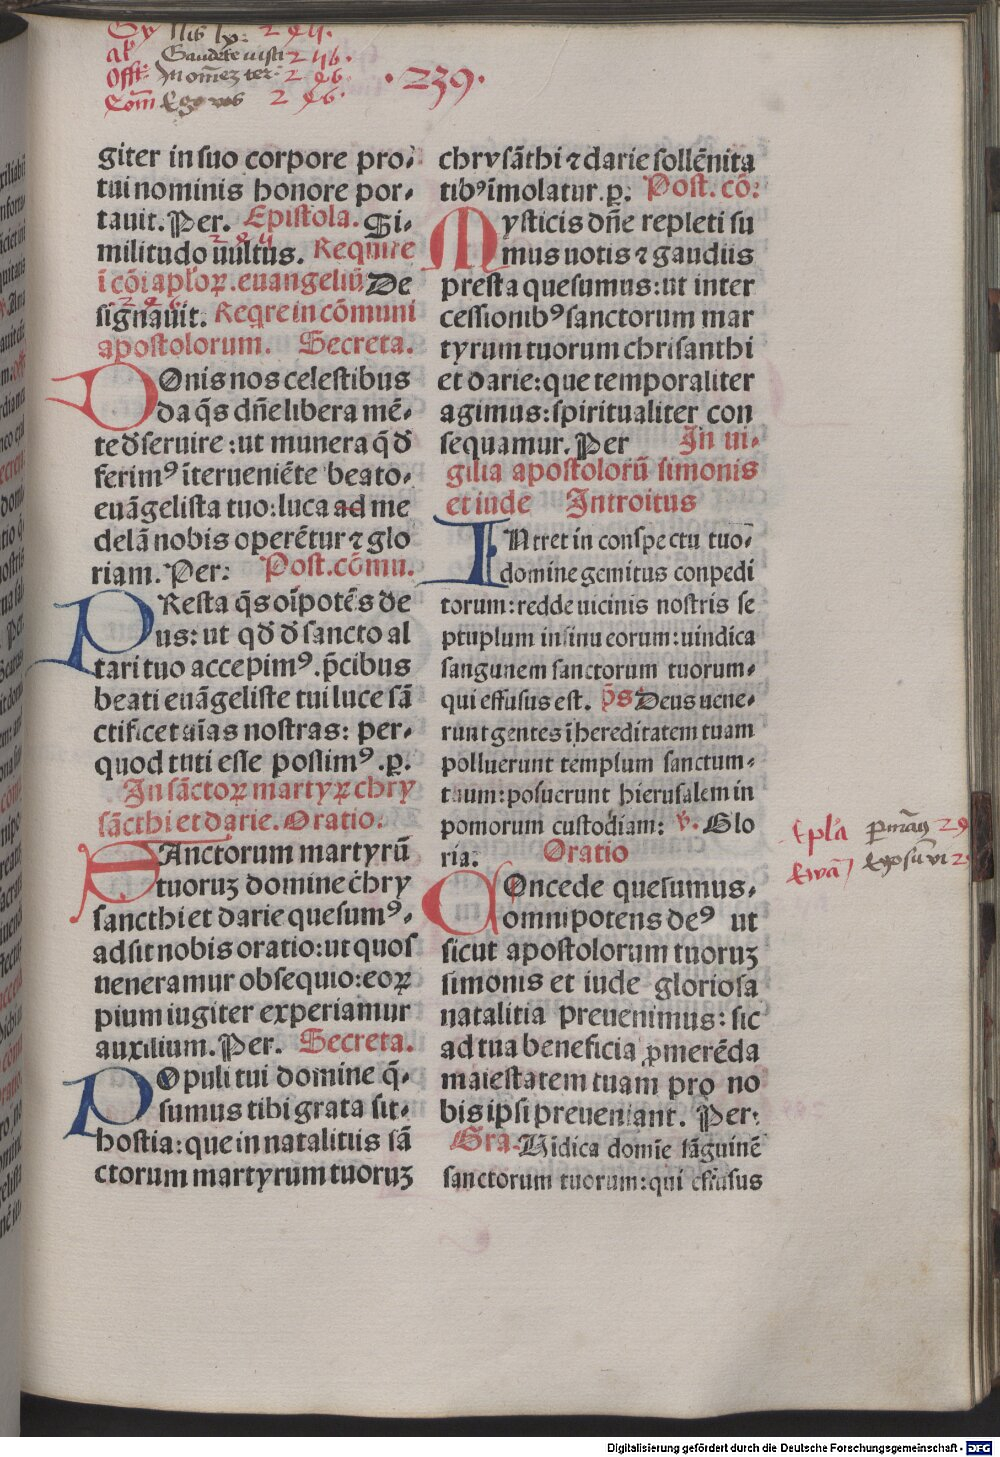 ·239·
giter in suo corpore pro⸗
tui nominis honore por⸗
tauit. Per. Epistola. Si⸗
militudo uultus. Require
ī cōi apl'oꝝ. euangeliū De
signauit. Reqͥre in cōmuni
apostolorum. Secreta.
DOnis nos celestibus
da q̄s dn̄e libera mē⸗
te đseruire: ut munera q̄ đ
ferimꝰ īterueniēte beato⸗
euāgelista tuo: luca ad me
delā nobis operētur ⁊ glo
riam. Per: Post. cōmu.
PResta q̄s oīpotēs de
us: ut qđ đ sancto al
tari tuo accepimꝰ. p̄cibus
beati euāgeliste tui luce sā
ctificet aīas nostras: per⸗
quod tuti esse possimꝰ. p̱.
In sāctoꝝ martyꝝ chry
sācthi et darie. Oratio.
SAnctorum martyrū
tuoruꝫ domine chry
sancthi et darie quesumꝰ⸗
adsit nobis oratio: ut quos
ueneramur obsequio: eoꝝ
pium iugiter experiamur
auxilium. Per. Secreta.
POpuli tui domine q̄⸗
sumus tibi grata sit⸗
hostia: que in natalitiis sā
ctorum martyrum tuoruꝫ
chrysāthi ⁊ darie sollēnita
tibꝰ īmolatur. p̱. Post. cō:
Mysticis dn̄e repleti su
mus uotis ⁊ gaudiis
presta quesumus: ut inter
cessionibꝰ sanctorum mar
tyrum tuorum chrisanthi
et darie: que temporaliter
agimus: spiritualiter con
sequamur. Per In ui⸗
gilia apostolorū simonis
et iude Introitus
INtret in conspectu tuo⸗
domine gemitus conpedi
torum: redde uicinis nostris se
ptuplum in sinu eorum: uindica
sanguinem sanctorum tuorum⸗
qui effusus est. p̄s Deus uene⸗
runt gentes ī hereditatem tuam
polluerunt templum sanctum⸗
tuum: posuerunt hierusalem in
pomorum custodiam: v. Glo
ria: Oratio
COncede quesumus⸗
omnipotens deꝰ ut
sicut apostolorum tuoruꝫ
simonis et iude gloriosa
natalitia preuenimus: sic
ad tua beneficia ꝓmerēda
maiestatem tuam pro no
bis ipsi preueniant. Per:
Gra. Uidica domīe sāguinē
sanctorum tuorum: qui effusus
Digitalisierung gefördert durch die Deutsche Forschungsgemeinschaft - DFG